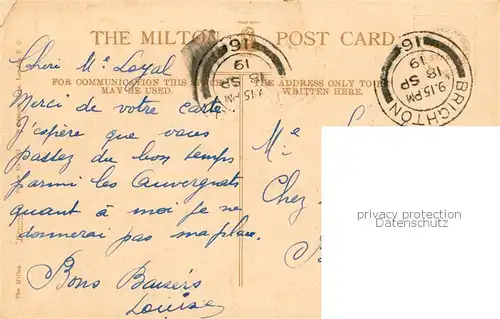 THE MILTON POST CARD
FOR COMMUNICATION THIS
MAY BE USED.
THE ADDRESS ONLY TO
WRITTEN HERE.
BRIGHTON
9.15 PM
18 SP
19
16
9.15 PM
18 SP
19
16
Cheri Me Loyal
Merci de votre carte
J'espère que vous
passez du bon temps
parmi les Auvergnats
quant à moi je ne
donnerai pas ma place.
Bons Baisers
Louise
Me
Chez
The Milton
privacy protection
www.oldthing.de